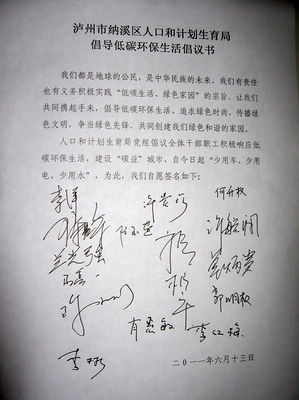 泸州市纳溪区人口和计划生育局
倡导低碳环保生活倡议书
我们都是地球的公民，是中华民族的未来，我们有责任
也有义务积极实践“低碳生活，绿色家园”的宗旨，让我们
共同携起手来，倡导低碳环保生活、追求绿色时尚、传播绿
色文明，争当绿色先锋，共同创建我们绿色和谐的家园。
人口和计划生育局党组倡议全体干部职工积极响应低
碳环保生活，建设“碳益”城市，自今日起“少用车、少用
电、少用水”，为此，我们自愿签名如下：
李洋
何升权
许航
郭明权
肖愚敏
李红梅
李彬
二〇一一年六月十三日